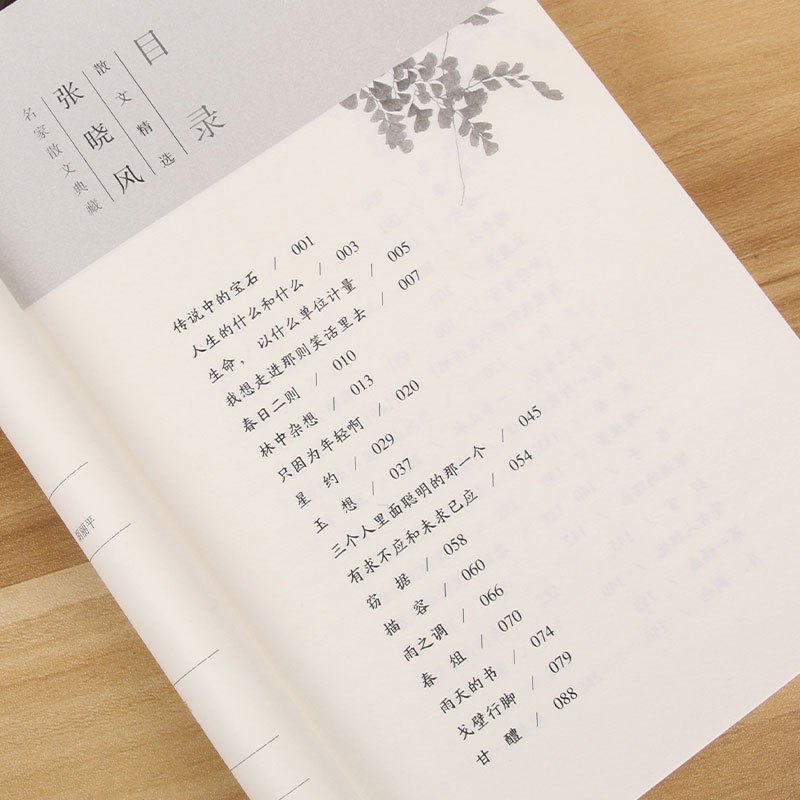 目录
散文精选
张晓风
名家散文典藏
传说中的宝石 / 001
人生的什么和什么 / 003
生命，以什么单位计量 / 005
我想走进那则笑话里去 / 007
春日二则 / 010
林中杂想 / 013
只因为年轻啊 / 020
星约 / 029
玉想 / 037
三个人里面聪明的那一个 / 045
有求不应和未求已应 / 054
窃据 / 058
描容 / 060
雨之调 / 066
春俎 / 070
雨天的书 / 074
戈壁行脚 / 079
甘醴 / 088
丽平